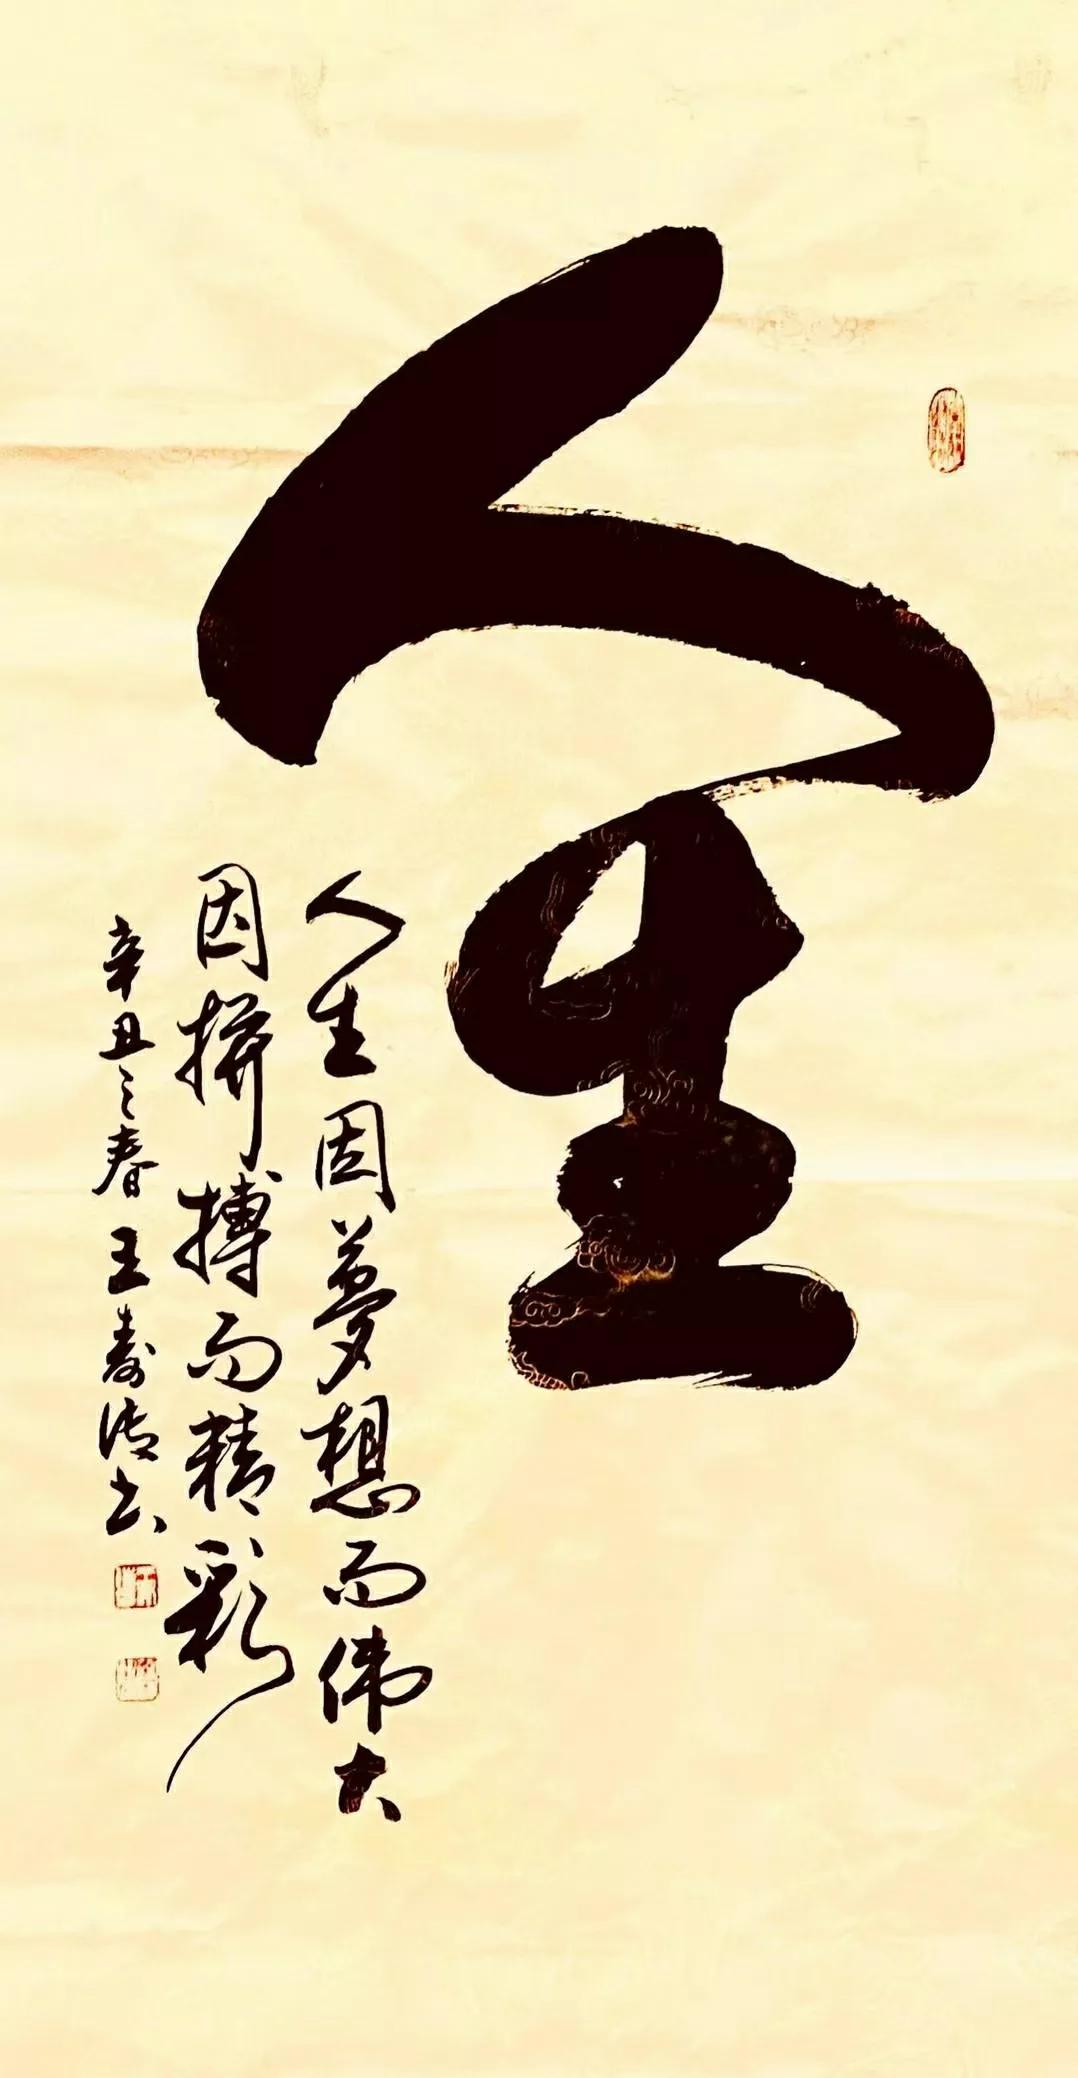 人生
人生因梦想而伟大
因拼搏而精彩
辛丑之春 王寿涛书